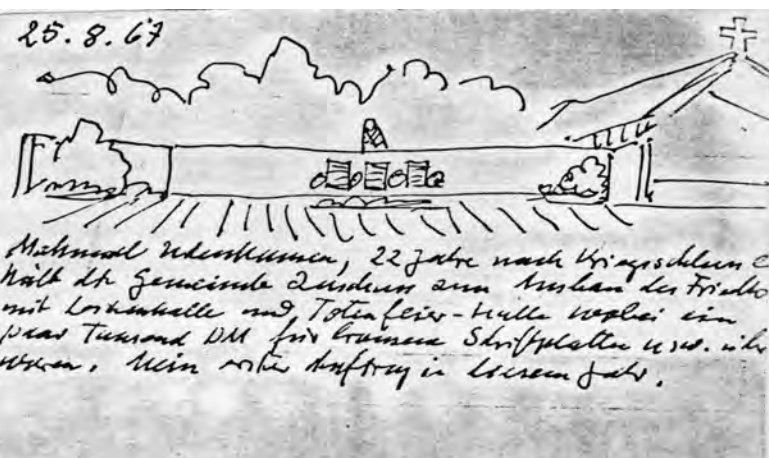 25.8.67
Mahnmal 22 Jahre nach Kriegsschluss e
hält die Gemeinde Zuschuss zum Ausbau des Friedho
mit Leichenhalle und Totenfeier-Halle wobei ein
paar Tausend DM für bronzene Schriftplatten usw. übr
waren. Mein erster Auftrag in diesem Jahr.